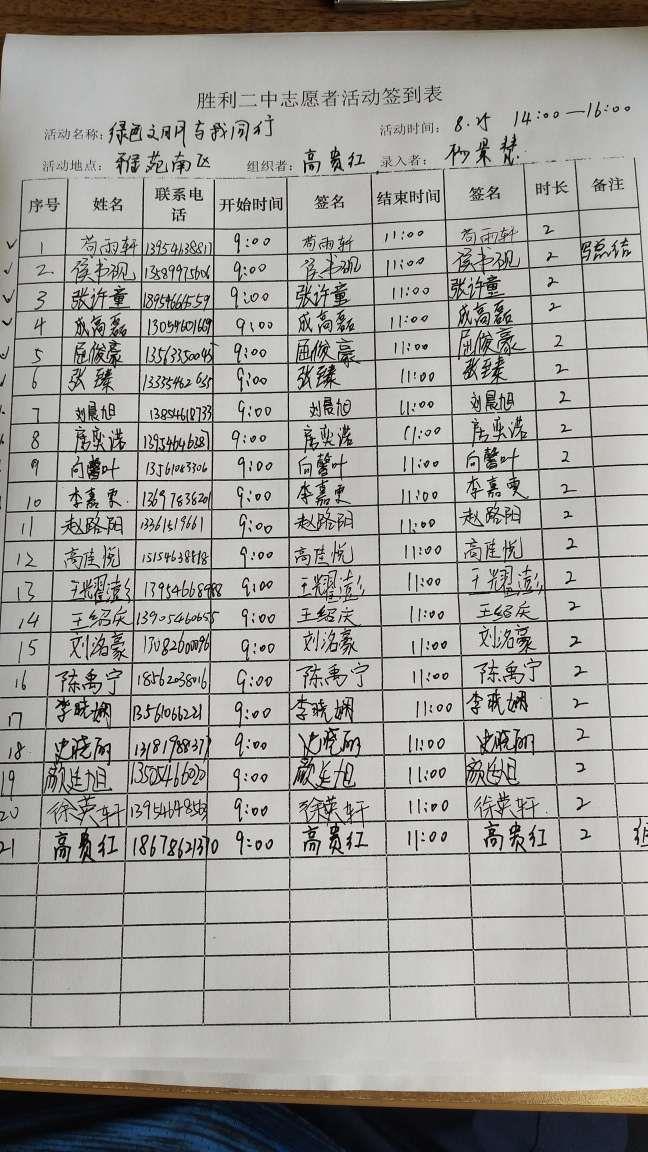 胜利二中志愿者活动签到表
活动名称: 绿色文明与我同行 活动时间: 8.25 14:00—16:00
活动地点: 雅苑南区 组织者: 高贵红 录入者: 杨景慧
序号 姓名 联系电话 开始时间 签名 结束时间 签名 时长 备注
1 苟雨轩 13954638817 9:00 苟雨轩 11:00 苟雨轩 2
2 侯书砚 13589975606 9:00 侯书砚 11:00 侯书砚 2 写总结
3 张许童 18954664559 9:00 张许童 11:00 张许童 2
4 成高磊 13054601669 9:00 成高磊 11:00 成高磊 2
5 屈俊豪 9:00 屈俊豪 11:00 屈俊豪 2
6 张臻 13335462635 9:00 张臻 11:00 张臻 2
7 刘晨旭 13854618733 9:00 刘晨旭 11:00 刘晨旭 2
8 房奕诺 13954646287 9:00 房奕诺 11:00 房奕诺 2
9 向馨叶 9:00 向馨叶 11:00 向馨叶 2
10 李嘉雯 13697838201 9:00 李嘉雯 11:00 李嘉雯 2
11 赵路阳 13361519661 9:00 赵路阳 11:00 赵路阳 2
12 高佳悦 15154638818 9:00 高佳悦 11:00 高佳悦 2
13 王耀澎 13954668988 9:00 王耀澎 11:00 王耀澎 2
14 王绍庆 13905460655 9:00 王绍庆 11:00 王绍庆 2
15 刘洺豪 17082600096 9:00 刘洺豪 11:00 刘洺豪 2
16 陈禹宁 18562038016 9:00 陈禹宁 11:00 陈禹宁 2
17 李晓娴 13561066221 9:00 李晓娴 11:00 李晓娴 2
18 史晓丽 9:00 史晓丽 11:00 史晓丽 2
19 颜廷旭 9:00 颜廷旭 11:00 颜廷旭 2
20 徐英轩 9:00 徐英轩 11:00 徐英轩 2
21 高贵红 18678621370 9:00 高贵红 11:00 高贵红 2